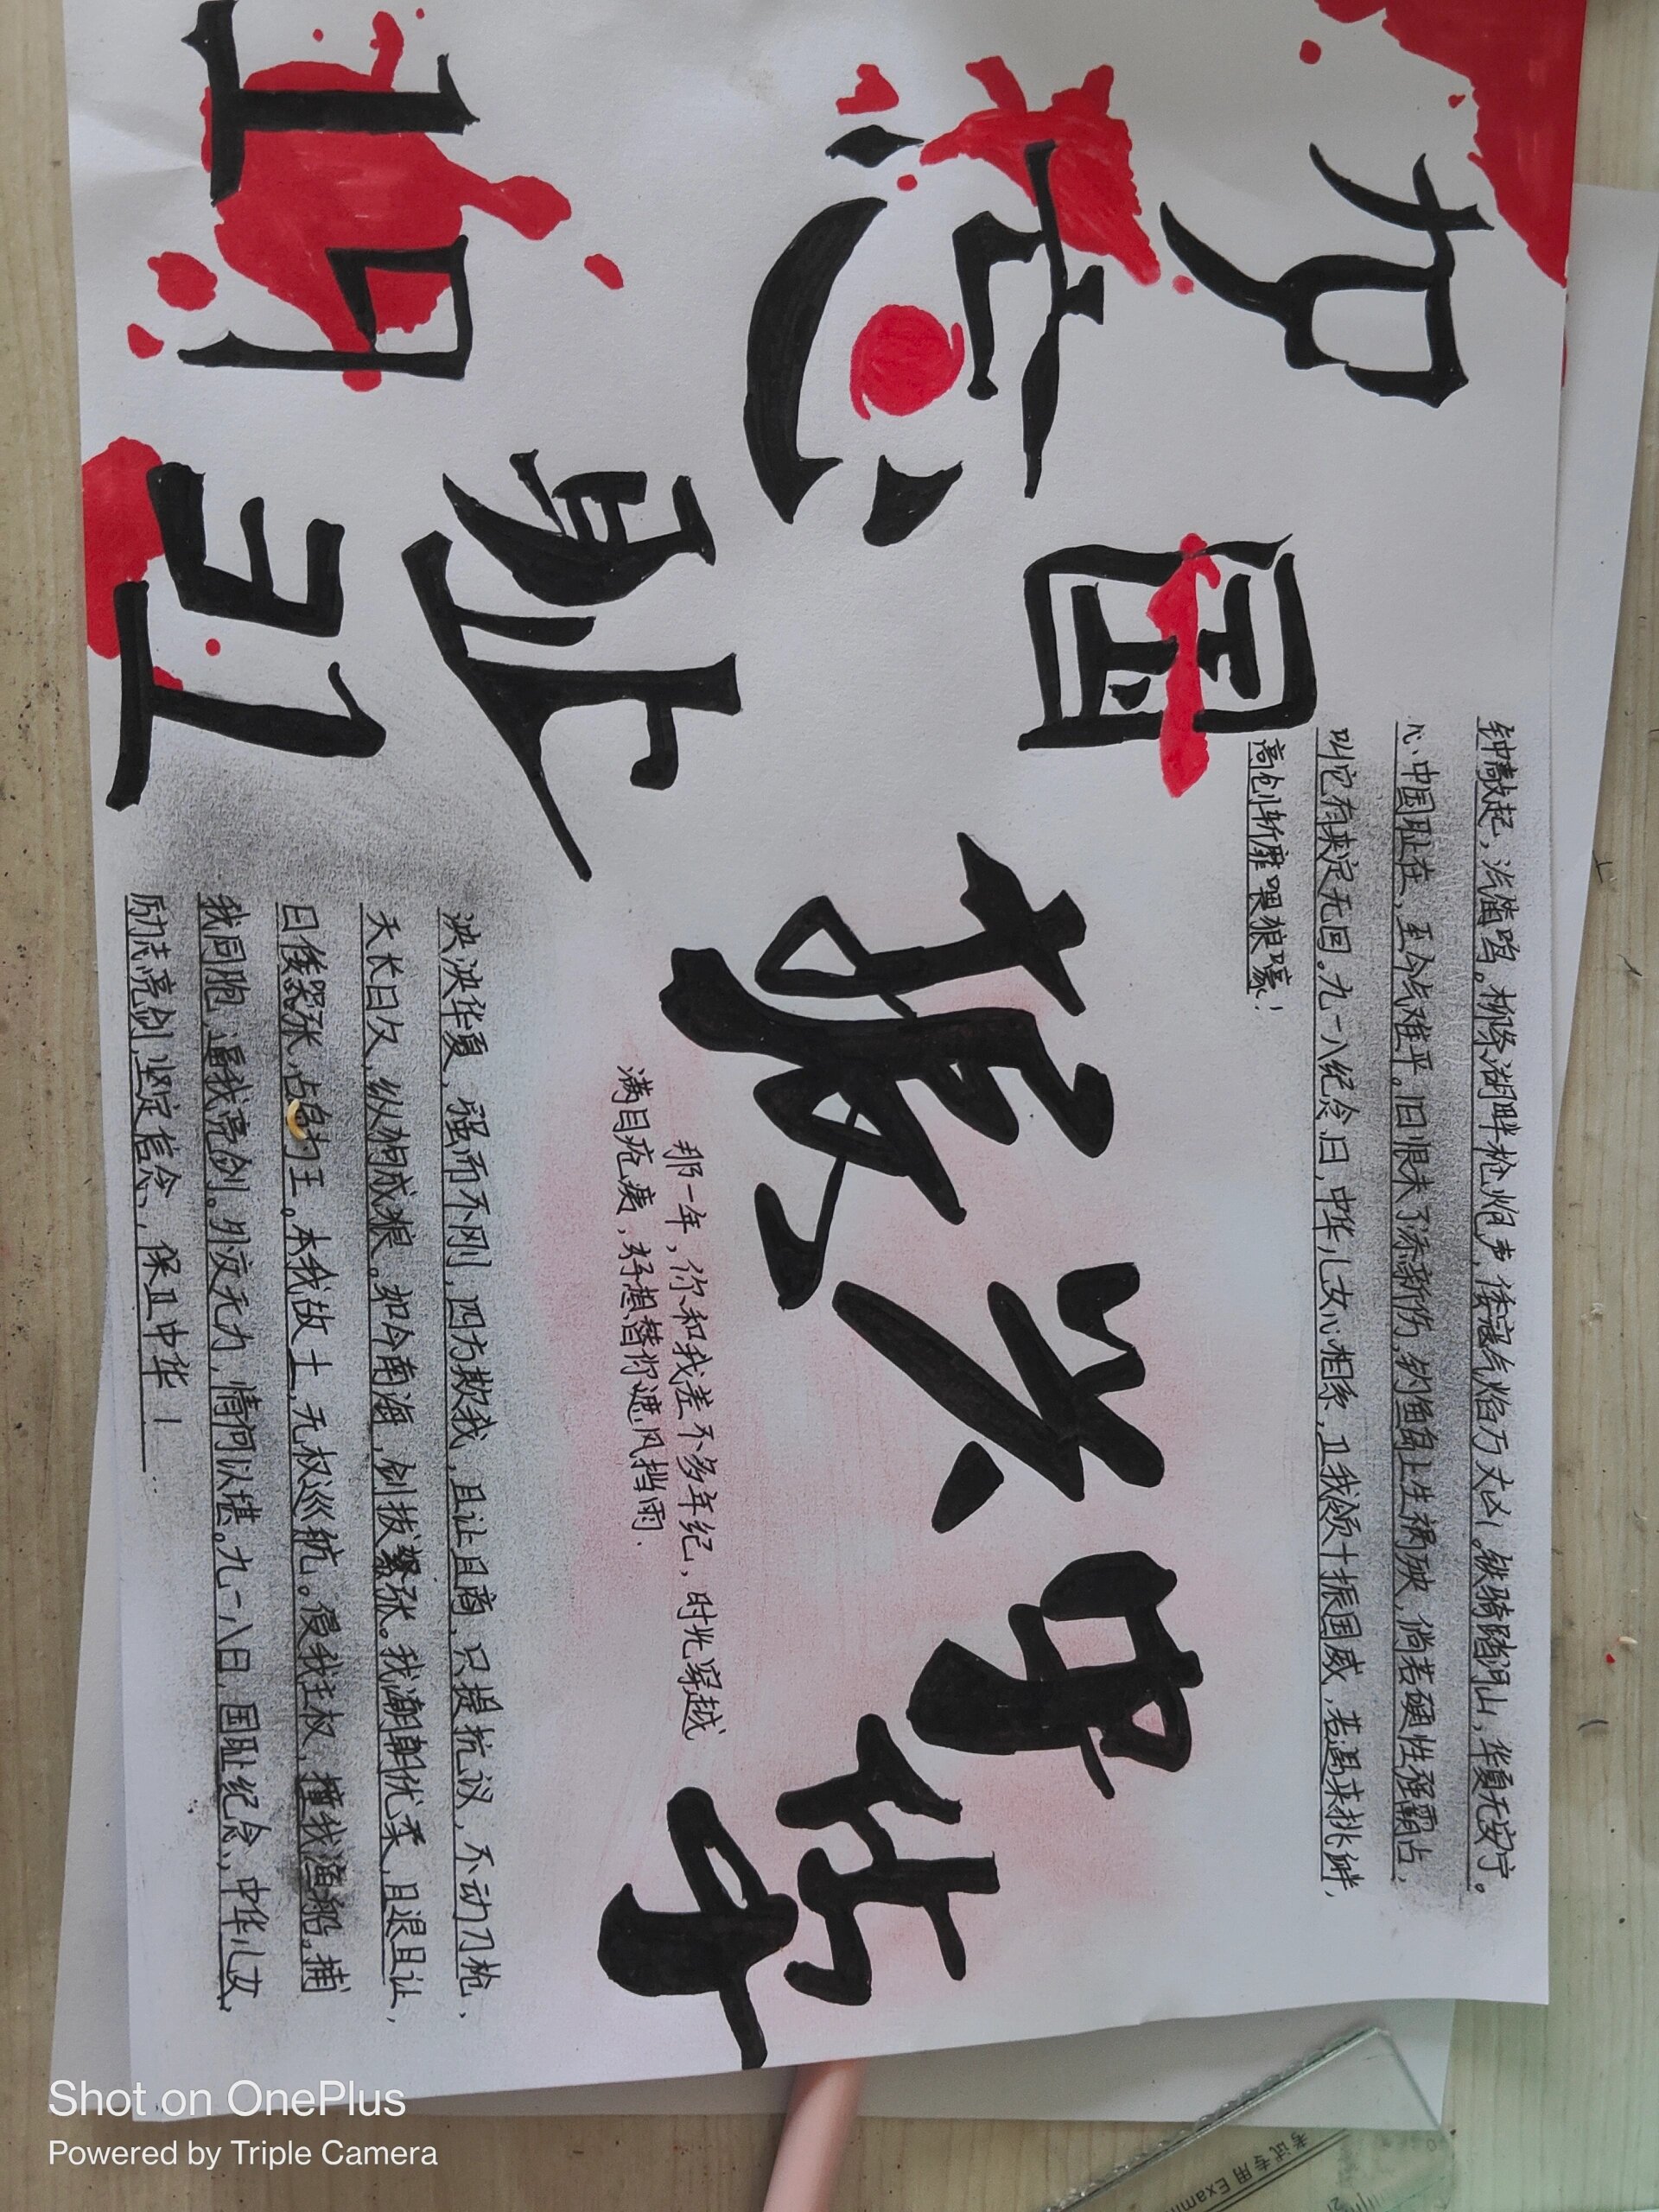 勿忘国耻
振兴中华
钟敲起，汽笛鸣。柳条湖畔枪炮声，倭寇气焰万丈凶。铁骑踏河山，华夏无安宁。
心中国耻在，至今气难平。旧恨未了添新伤，钓鱼岛上生祸殃，倘若硬性强霸占，
叫它有来定无回。九一八纪念日，中华儿女心相系，卫我领土振国威，若遇来挑衅，
高剑斩靡喂狼嚎！
那一年，你和我差不多年纪，时光穿越
满目疮痍，好想替你遮风挡雨.
泱泱华夏，强而不刚，四方欺我，且让且商，只提抗议，不动刀枪，
天长日久，纵狗成狼。如今南海，剑拔弩张。我潮朝优柔，且退且让，
日倭嚣张，占岛为王。本我故土，无权巡航。侵我主权，撞我渔船。捕
我同胞，逼我亮剑。外交无力，情何以堪。九一八日，国耻纪念，中华儿女，
励志亮剑，坚定信念，保卫中华！
考试专用 Exam
Shot on OnePlus
Powered by Triple Camera